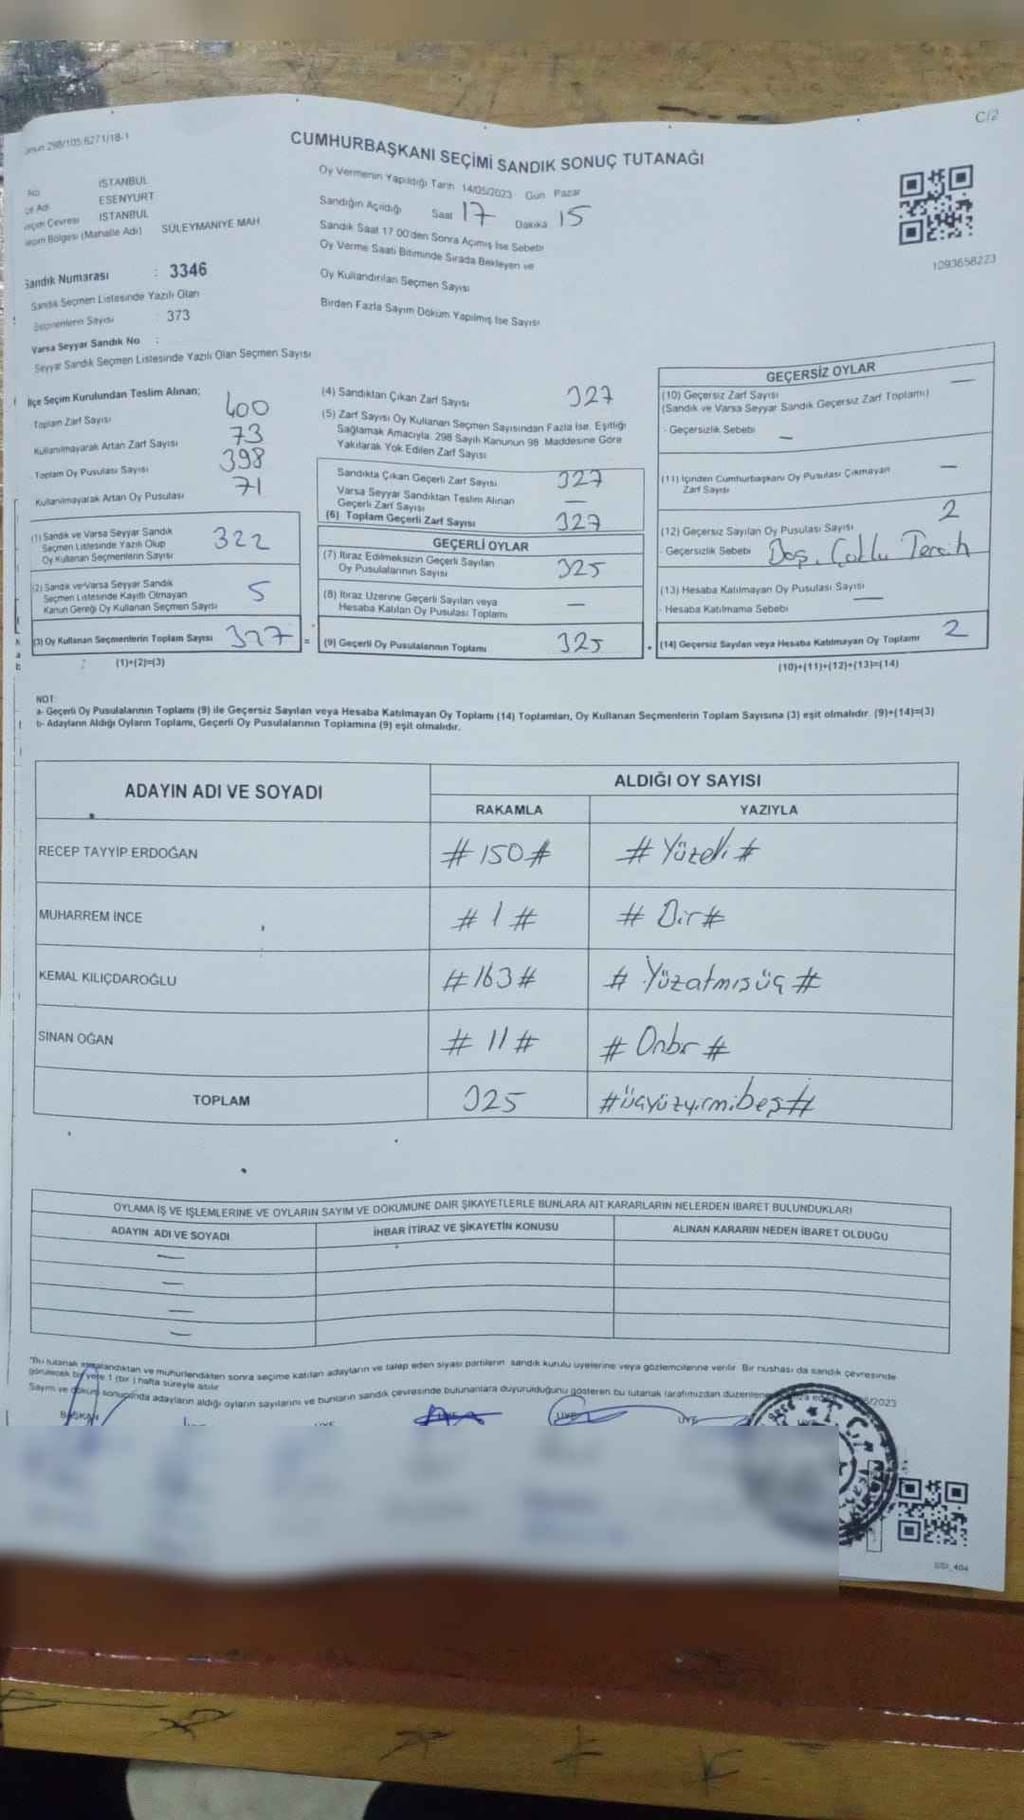 C/2
CUMHURBAŞKANI SEÇİMİ SANDIK SONUÇ TUTANAĞI
298/105.6271/18-1
İSTANBUL
ESENYURT
İSTANBUL
(Mahalle Adı) SÜLEYMANİYE MAH
Sandık Numarası : 3346
Sandık Seçmen Listesinde Yazılı Olan
Seçmenlerin Sayısı 373
Varsa Seyyar Sandık No :
Seyyar Sandık Seçmen Listesinde Yazılı Olan Seçmen Sayısı
Oy Vermenin Yapıldığı Tarih 14/05/2023 Gün Pazar
Sandığın Açıldığı Saat 17 Dakika 15
Sandık Saat 17.00'den Sonra Açılmış İse Sebebi
Oy Verme Saati Bitiminde Sırada Bekleyen ve
Oy Kullandırılan Seçmen Sayısı
Birden Fazla Sayım Döküm Yapılmış İse Sayısı
1093658223
İlçe Seçim Kurulundan Teslim Alınan;
Toplam Zarf Sayısı 400
Kullanılmayarak Artan Zarf Sayısı 73
Toplam Oy Pusulası Sayısı 398
Kullanılmayarak Artan Oy Pusulası 71
(1) Sandık ve Varsa Seyyar Sandık
Seçmen Listesinde Yazılı Olup
Oy Kullanan Seçmenlerin Sayısı 322
(2) Sandık ve Varsa Seyyar Sandık
Seçmen Listesinde Kayıtlı Olmayan
Kanun Gereği Oy Kullanan Seçmen Sayısı 5
(3) Oy Kullanan Seçmenlerin Toplam Sayısı 327 =
(1)+(2)=(3)
(4) Sandıktan Çıkan Zarf Sayısı 327
(5) Zarf Sayısı Oy Kullanan Seçmen Sayısından Fazla İse, Eşitliği
Sağlamak Amacıyla, 298 Sayılı Kanunun 98. Maddesine Göre
Yakılarak Yok Edilen Zarf Sayısı
Sandıkta Çıkan Geçerli Zarf Sayısı 327
Varsa Seyyar Sandıktan Teslim Alınan
Geçerli Zarf Sayısı —
(6) Toplam Geçerli Zarf Sayısı 327
GEÇERLİ OYLAR
(7) İtiraz Edilmeksizin Geçerli Sayılan
Oy Pusulalarının Sayısı 325
(8) İtiraz Üzerine Geçerli Sayılan veya
Hesaba Katılan Oy Pusulası Toplamı —
(9) Geçerli Oy Pusulalarının Toplamı 325
GEÇERSİZ OYLAR
(10) Geçersiz Zarf Sayısı —
(Sandık ve Varsa Seyyar Sandık Geçersiz Zarf Toplamı)
- Geçersizlik Sebebi —
(11) İçinden Cumhurbaşkanı Oy Pusulası Çıkmayan
Zarf Sayısı —
(12) Geçersiz Sayılan Oy Pusulası Sayısı 2
- Geçersizlik Sebebi Boş, Çoklu Tercih
(13) Hesaba Katılmayan Oy Pusulası Sayısı —
- Hesaba Katılmama Sebebi
(14) Geçersiz Sayılan veya Hesaba Katılmayan Oy Toplamı 2
(10)+(11)+(12)+(13)=(14)
NOT:
a- Geçerli Oy Pusulalarının Toplamı (9) ile Geçersiz Sayılan veya Hesaba Katılmayan Oy Toplamı (14) Toplamları, Oy Kullanan Seçmenlerin Toplam Sayısına (3) eşit olmalıdır. (9)+(14)=(3)
b- Adayların Aldığı Oyların Toplamı, Geçerli Oy Pusulalarının Toplamına (9) eşit olmalıdır.
ADAYIN ADI VE SOYADI
ALDIĞI OY SAYISI
RAKAMLA YAZIYLA
RECEP TAYYİP ERDOĞAN #150# #Yüzelli#
MUHARREM İNCE #1# #Bir#
KEMAL KILIÇDAROĞLU #163# #Yüzatmışüç#
SİNAN OĞAN #11# #Onbr#
TOPLAM 325 #üçyüzyirmibeş#
OYLAMA İŞ VE İŞLEMLERİNE VE OYLARIN SAYIM VE DÖKÜMÜNE DAİR ŞİKAYETLERLE BUNLARA AİT KARARLARIN NELERDEN İBARET BULUNDUKLARI
ADAYIN ADI VE SOYADI İHBAR İTİRAZ VE ŞİKAYETİN KONUSU ALINAN KARARIN NEDEN İBARET OLDUĞU
—
—
—
—
*Bu tutanak imzalandıktan ve mühürlendikten sonra seçime katılan adayların ve talep eden siyasi partilerin sandık kurulu üyelerine veya gözlemcilerine verilir. Bir nüshası da sandık çevresinde
görülecek bir yere 1 (bir) hafta süreyle asılır.
Sayım ve döküm sonucunda adayların aldığı oyların sayılarını ve bunların sandık çevresinde bulunanlara duyurulduğunu gösteren bu tutanak tarafımızdan
BAŞKAN ÜYE ÜYE ÜYE
T.C.